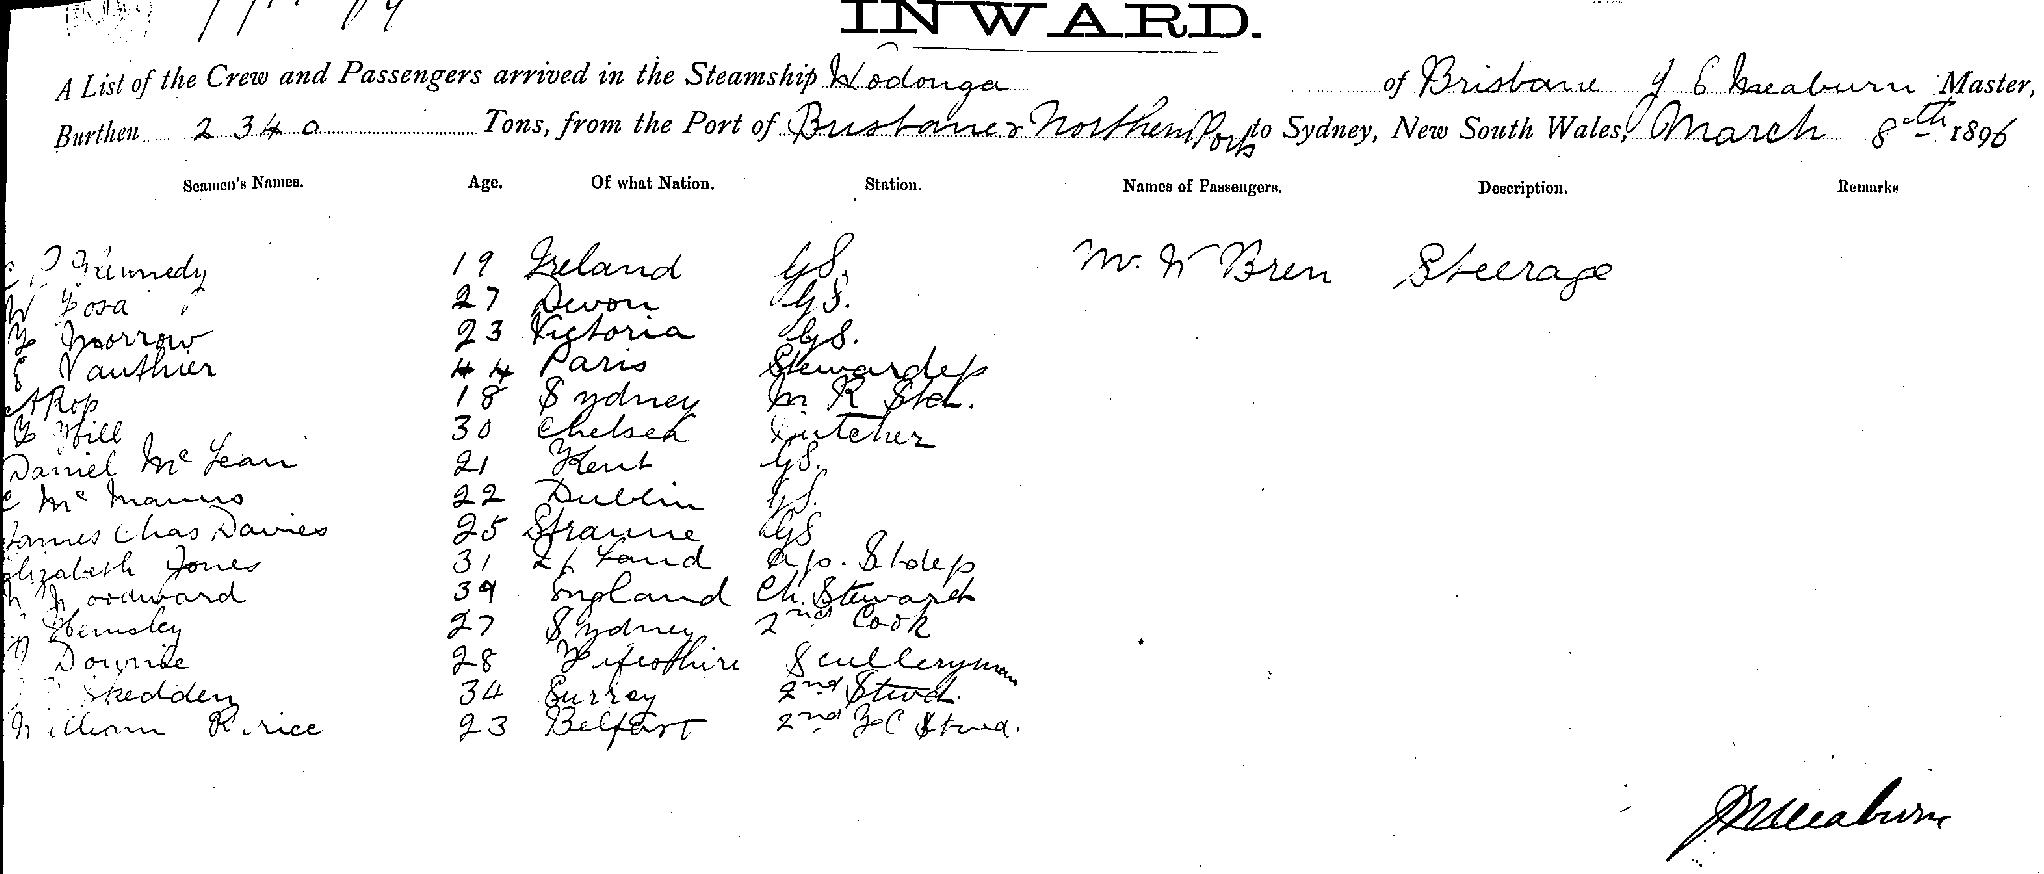 INWARD.
A List of the Crew and Passengers arrived in the Steamship Wodonga of Brisbane J E Meaburn Master,
Burthen 2340 Tons, from the Port of Brisbane & Northern Ports to Sydney, New South Wales, March 8th 1896
Seamen's Names. Age. Of what Nation. Station. Names of Passengers. Description. Remarks
Kennedy 19 Ireland GS. Mr. W Bren Steerage
27 Devon GS.
Morrow 23 Victoria GS.
E Vauthier 44 Paris Stewardep
18 Sydney M R Std.
Hill 30 Chelsea Butcher
Daniel McLean 21 Kent GS.
C McManus 22 Dublin GS.
James Chas Davies 25 GS
Elizabeth Jones 31 Stdep
W Woodward 39 England Ch. Steward
Hemsley 27 Sydney 2nd Cook
Downie 28 Fifeshire Sculleryman
Skedden 34 Surrey 2nd Stwd.
William R. rice 23 Belfast 2nd Stwd.
J E Meaburn